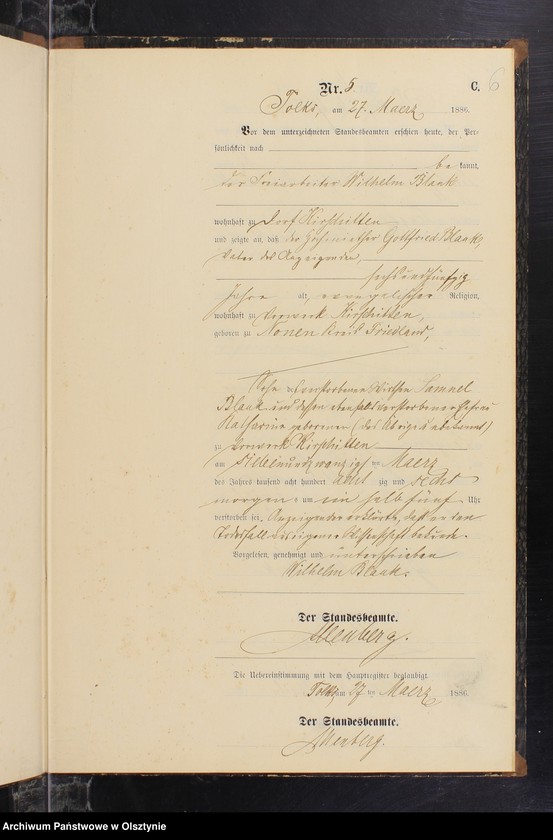 Nr. 5 C. 6
Tolks, am 27. Maerz 1886.
Vor dem unterzeichneten Standesbeamten erschien heute, der Per-
sönlichkeit nach
be kannt,
der Wilhelm Blaak
wohnhaft zu Dorf Kirschitten
und zeigte an, daß der Gottfried Blaak,
Vater des Anzeigenden,
sechsundfünfzig
Jahre alt, evangelischer Religion,
wohnhaft zu Vorwerk Kirschitten,
geboren zu Nonen Kreis Friedland,
Sohn des verstorbenen Wirthen Samuel
Blaak und dessen ebenfalls verstorbenen Ehefrau
Katharine geborenen (das Übrige unbekannt)
zu Vorwerk Kirschitten
am siebenundzwanzigsten Maerz
des Jahres tausend acht hundert acht zig und sechs
morgens um ein halb fünf Uhr
verstorben sei. Anzeigender erklärte, daß er den
Todesfall aus eigener Wissenschaft bekunde.
Vorgelesen, genehmigt und unterschrieben
Wilhelm Blaak.
Der Standesbeamte.
Die Uebereinstimmung mit dem Hauptregister beglaubigt
Tolks, am 27 ten Maerz 1886.
Der Standesbeamte.
Archiwum Państwowe w Olsztynie